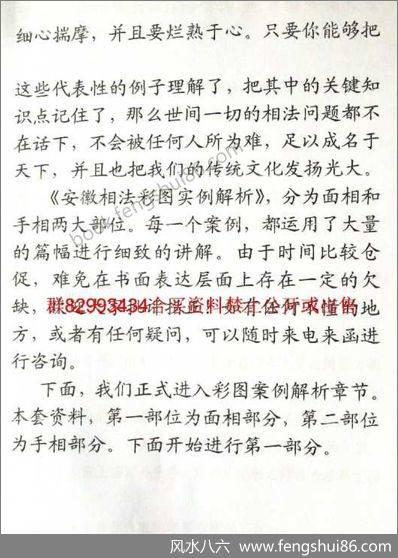 细心揣摩，并且要烂熟于心。只要你能够把
这些代表性的例子理解了，把其中的关键知
识点记住了，那么世间一切的相法问题都不
在话下，不会被任何人所为难，足以成名于
天下，并且也把我们的传统文化发扬光大。
《安徽相法彩图实例解析》，分为面相和
手相两大部位。每一个案例，都运用了大量
的篇幅进行细致的讲解。由于时间比较仓
促，难免在书面表达层面上存在一定的欠
缺，
群82993434
资料禁止公开或出售
如有任何不懂的地
方，或者有任何疑问，可以随时来电来函进
行咨询。
下面，我们正式进入彩图案例解析章节。
本套资料，第一部位为面相部分，第二部位
为手相部分。下面开始进行第一部分。
风水八六 www.fengshui86.com